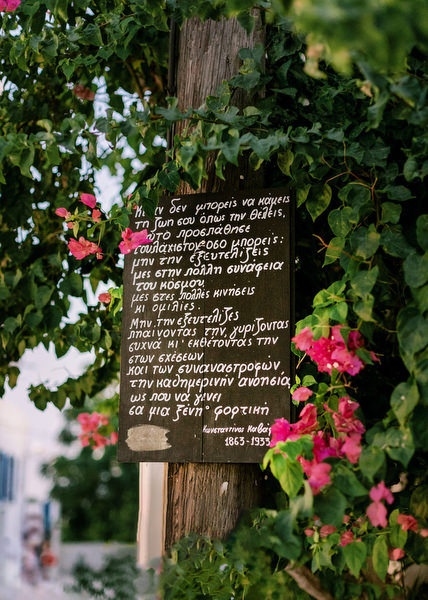 Κι αν δεν μπορείς να κάμεις
τη ζωή σου όπως την θέλεις,
τούτο προσπάθησε
τουλάχιστον οσο μπορείς:
μην την εξευτελίζεις
μες στην πολλή συνάφεια
του κόσμου,
μες στες πολλές κινήσεις
κι ομιλίες.
Μην την εξευτελίζεις
πιαίνοντάς την, γυρίζοντας
συχνά κι' εκθέτοντάς την
στων σχέσεων
και των συναναστροφών
την καθημερινήν ανοησία,
ως που να γίνει
σα μια ξένη φορτική
Κωνσταντίνος Καβάφης
1863-1933